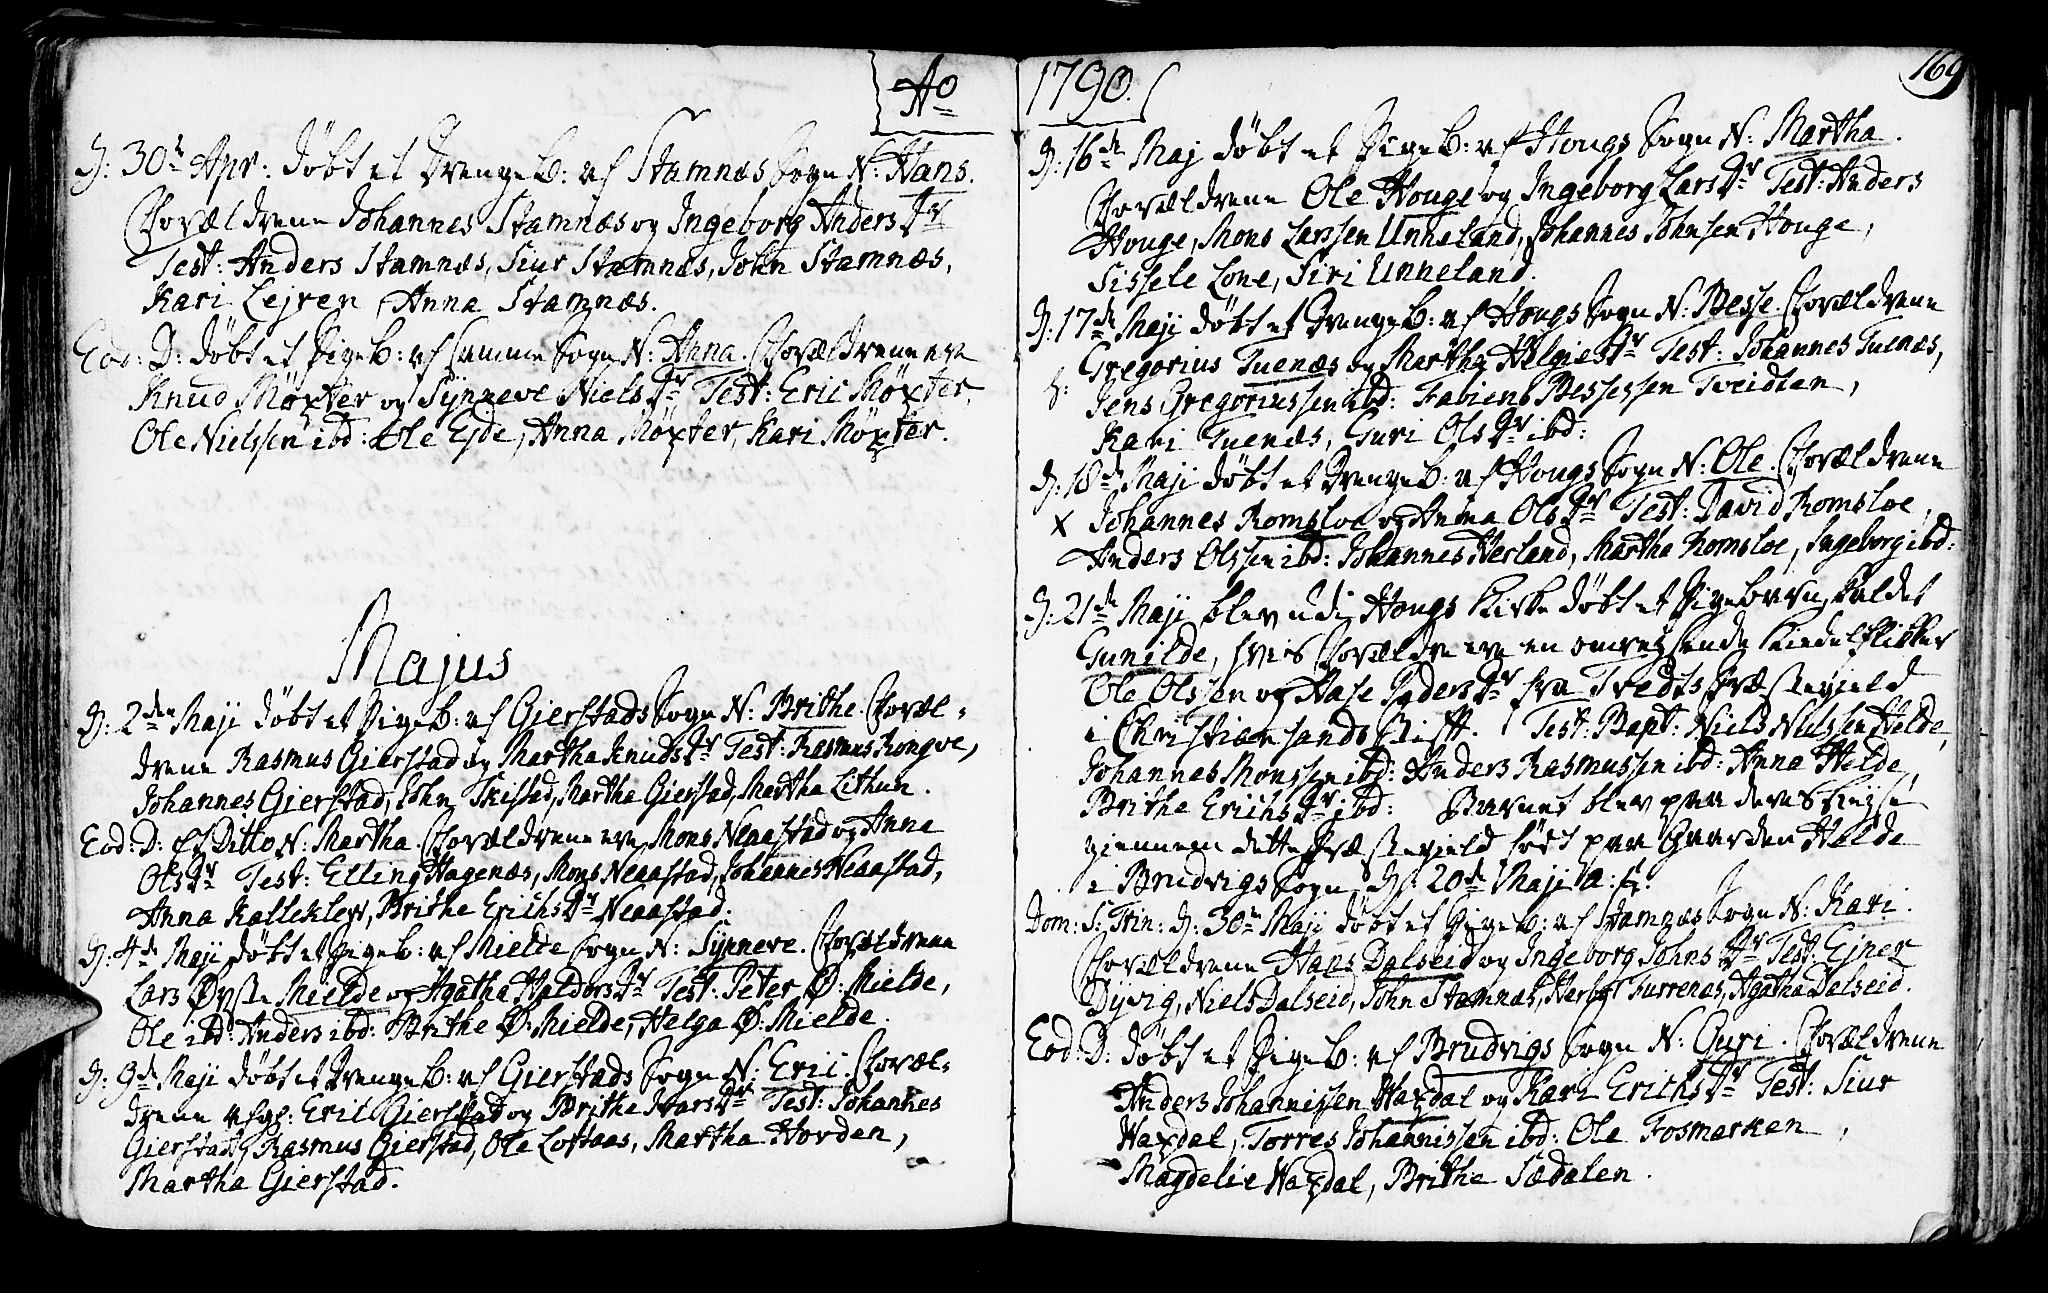 Ao
D: 30te Apr: døbt et Drengeb: af Stamnæs Sogn N: Hans.
Forældrene Johannes Stamnæs og Ingeborg Anders Dr
Test: Anders Stamnæs, Siur Stamnæs, John Stamnæs,
Kari Lejren, Anna Stamnæs.
Eod: D: døbt et Pigeb: af samme Sogn N: Anna. Forældrene ere
Knud Møxter og Synneve Niels Dr Test: Eric Møxter,
Ole Nielssen ibd: Ole Eide, Anna Møxter, Kari Møxter.
Majus
D: 2den Maji døbt et Pigeb: af Gierstads Sogn N: Brithe. Foræl-
drene Rasmus Gierstad og Martha Knuds Dr Test: Rasmus Rongve,
Johannes Gierstad, John Skistad, Martha Gierstad, Martha Lithun.
Eod: D: et Ditto N: Martha. Forældrene ere Mons Neaastad og Anna
Ols Dr Test: Elling Hagenæs, Mons Neaastad, Johannes Neaastad,
Anna Kallekleiv, Brithe Erichs Dr Neaastad.
D: 4de Maji døbt et Pigeb: af Mielde Sogn N: Synneve. Forældrene
Lars Øvste Mielde og Agatha Haldors Dr Test: Peter Ø: Mielde,
Ole ibd: Anders ibd: Brithe Ø: Mielde, Helga Ø: Mielde.
D: 9de Maji døbt et Drengeb: af Gierstads Sogn N: Eric. Foræl-
drene afg: Eric Gierstad og Brithe Ivars Dr Test: Johannes
Gierstad, Rasmus Gierstad, Ole Loftaas, Martha Horden,
Martha Gierstad.
1790.
169
D: 16de Maj døbt et Pigeb: af Hougs Sogn N: Martha.
Forældrene Ole Houge og Ingeborg Lars Dr Test: Anders
Houge, Mons Larssen Unneland, Johannes Johnsen Houge,
Sissele Lone, Siri Unneland.
D: 17de Maji døbt et Drengeb: af Hougs Sogn N: Besse. Forældrene
Gregorius Tuenæs og Martha Helgies Dr Test: Johannes Tuenæs,
Jens Gregoriussen ibd: Fabiens Bessessen Tveidten,
Kari Tuenæs, Guri Ols Dr ibd:
D: 18de Maji døbt et Drengeb: af Hougs Sogn N: Ole. Forældrene
x Johannes Romsloe og Anna Ols Dr Test: David Romsloe,
Anders Olssen ibd: Johannes Herland, Martha Romsloe, Ingeborg ibd:
D: 21de Maji blev udi Hougs Kirke døbt et Pigebarn, kaldet
Gunilde, hvis Forældre ere en omreysende Kiedelflikker
Ole Olssen og Aase Peders Dr fra Tvedts Præstegield
i Christiansands Stift. Test: Bapt: Niels Nielssen Helde,
Johannes Monssen ibd: Anders Rasmussen ibd: Anna Helde,
Brithe Erichs Dr ibd: Barnet blev paa deres Reyse
giennem dette Præstegield født paa Gaarden Helde
i Brudvigs Sogn, d: 20de Maji a: c:
Dom: S: Trin: D: 30te Maji døbt et Pigeb: af Stamnæs Sogn N: Kari.
Forældrene Hans Dalseid og Ingeborg Johns Dr Test: Ejner
Dyvig, Niels Dalseid, John Stamnæs, Herbg Furrenæs, Agatha Dalseid.
Eod: D: døbt et Pigeb: af Brudvigs Sogn N: Guri. Forældrene
Anders Johannissen Waxdal og Kari Erichs Dr Test: Siur
Waxdal, Torres Johannissen ibd: Ole Fosmarken,
Magdelie Waxdal, Brithe Sædalen.